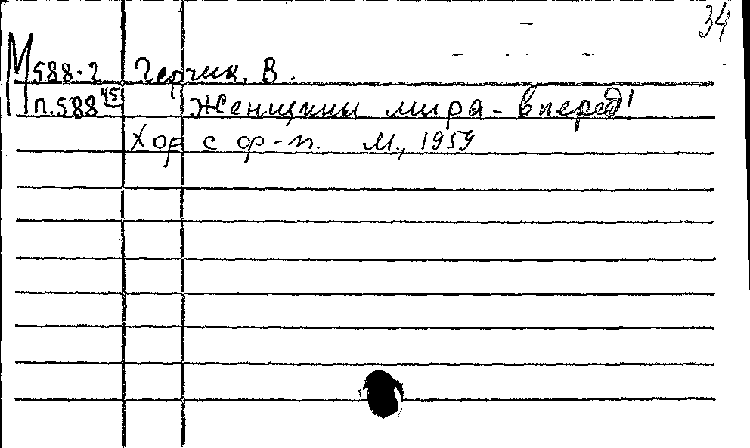 34
М 588-2 Герчик, В.
п.588 45 Женщины мира - вперед!
Хор с ф-п. М., 1959